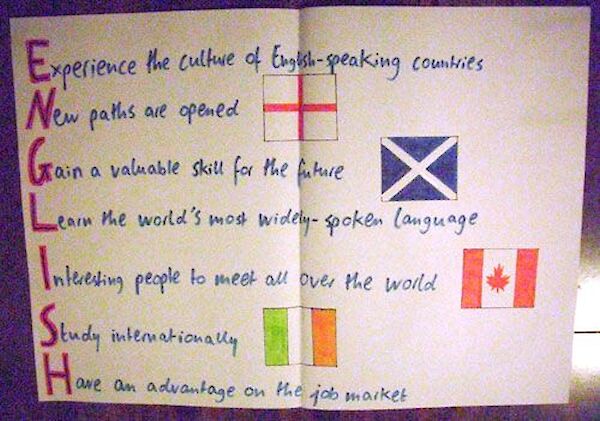 Experience the culture of English-speaking countries
New paths are opened
Gain a valuable skill for the future
Learn the world's most widely-spoken language
Interesting people to meet all over the world
Study internationally
Have an advantage on the job market